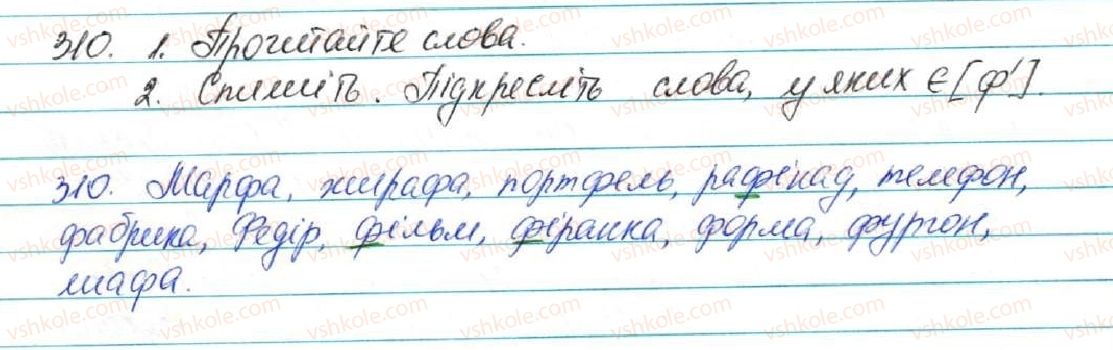 310. 1. Прочитайте слова.
2. Спишіть. Підкресліть слова, у яких є [ф'].
310. Марфа, жирафа, портфель, рафінад, телефон,
фабрика, Федір, фільм, фіранка, форма, фургон,
шафа.